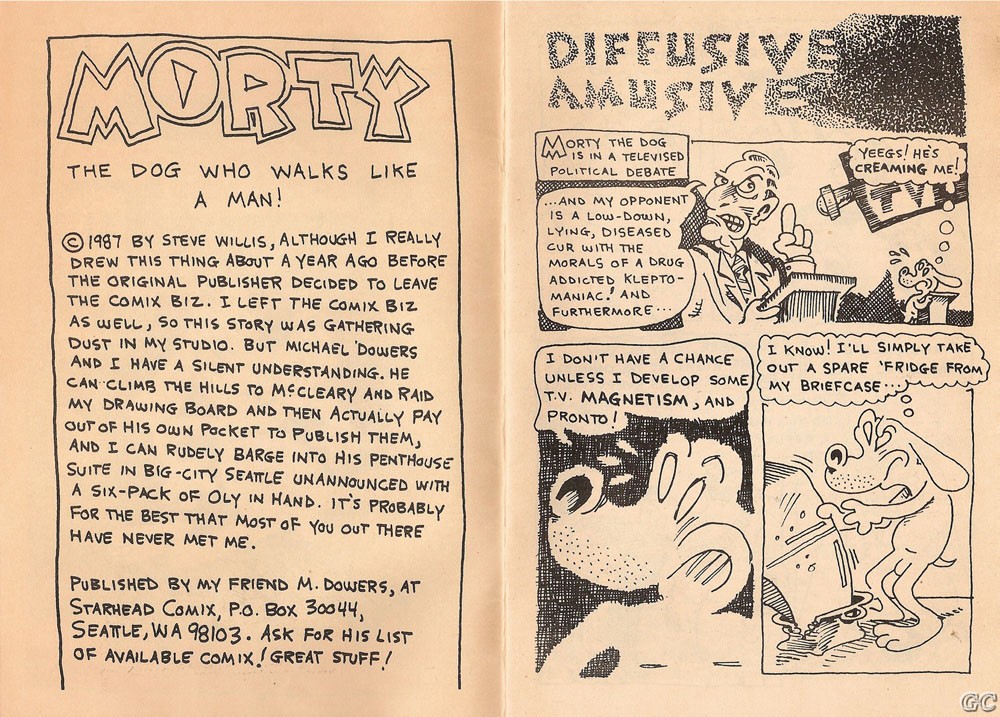 MORTY
THE DOG WHO WALKS LIKE
A MAN!
© 1987 BY STEVE WILLIS, ALTHOUGH I REALLY
DREW THIS THING ABOUT A YEAR AGO BEFORE
THE ORIGINAL PUBLISHER DECIDED TO LEAVE
THE COMIX BIZ. I LEFT THE COMIX BIZ
AS WELL, SO THIS STORY WAS GATHERING
DUST IN MY STUDIO. BUT MICHAEL DOWERS
AND I HAVE A SILENT UNDERSTANDING. HE
CAN CLIMB THE HILLS TO McCLEARY AND RAID
MY DRAWING BOARD AND THEN ACTUALLY PAY
OUT OF HIS OWN POCKET TO PUBLISH THEM,
AND I CAN RUDELY BARGE INTO HIS PENTHOUSE
SUITE IN BIG-CITY SEATTLE UNANNOUNCED WITH
A SIX-PACK OF OLY IN HAND. IT'S PROBABLY
FOR THE BEST THAT MOST OF YOU OUT THERE
HAVE NEVER MET ME.
PUBLISHED BY MY FRIEND M. DOWERS, AT
STARHEAD COMIX, P.O. BOX 30044,
SEATTLE, WA 98103. ASK FOR HIS LIST
OF AVAILABLE COMIX! GREAT STUFF!
DIFFUSIVE
AMUSIVE
MORTY THE DOG
IS IN A TELEVISED
POLITICAL DEBATE
...AND MY OPPONENT
IS A LOW-DOWN,
LYING, DISEASED
CUR WITH THE
MORALS OF A DRUG
ADDICTED KLEPTO-
MANIAC! AND
FURTHERMORE...
YEEGS! HE'S
CREAMING ME!
TV
I DON'T HAVE A CHANCE
UNLESS I DEVELOP SOME
T.V. MAGNETISM, AND
PRONTO!
I KNOW! I'LL SIMPLY TAKE
OUT A SPARE 'FRIDGE FROM
MY BRIEFCASE...
GC